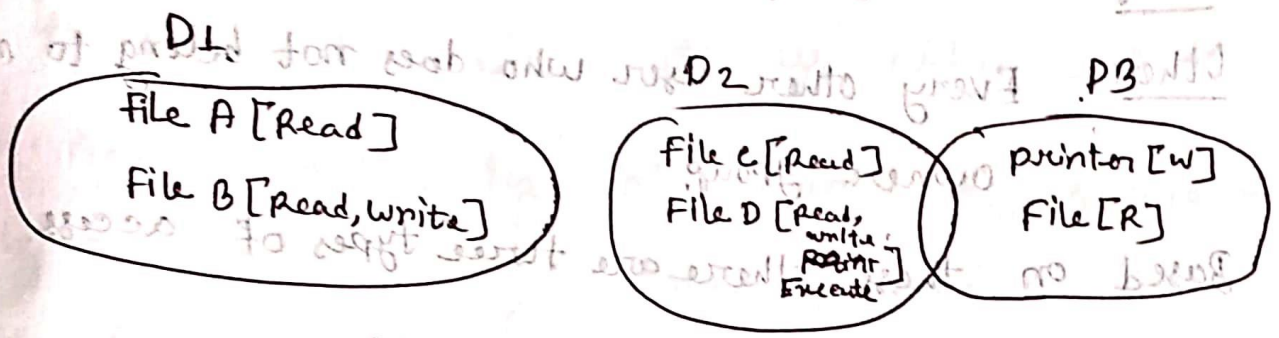 D1
File A [Read]
File B [Read, write]
D2
File C [Read]
File D [Read,
write,
Execute
D3
printer [W]
File [R]